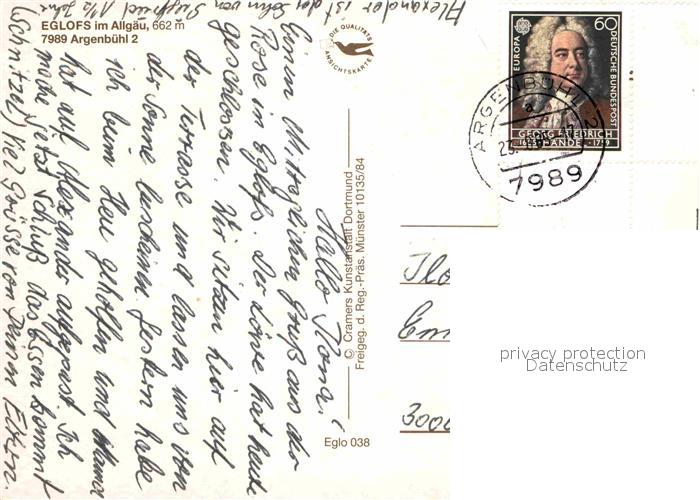 EGLOFS im Allgäu, 662 m
7989 Argenbühl 2
Alexander ist der Sohn von Siegfried 1 1/2 Jahre
Hallo Ilona!
Einen Mittäglichen Gruß aus der
Rose in Eglofs. Der Löwe hat heute
geschlossen. Wir sitzen hier auf
der Terrasse und lassen uns von
der Sonne bescheinen. Gestern habe
ich beim Heu geholfen und Mama
hat auf Alexander aufgepasst. Ich
mache jetzt schluß das Essen kommt
(Schnitzel) Viel Grüsse von Deinen Eltern.
DIE QUALITÄTS
ANSICHTSKARTE
© Cramers Kunstanstalt Dortmund
Freigeg. d. Reg.-Präs. Münster 10135/84
Eglo 038
EUROPA
60
DEUTSCHE BUNDESPOST
GEORG FRIEDRICH
1685 HÄNDEL 1759
ARGENBÜHL 2
a
7989
Ilo
Em
3000
privacy protection
Datenschutz